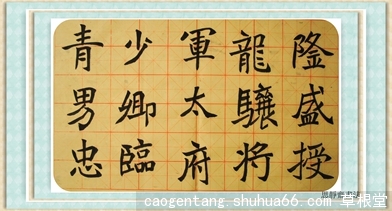 隆盛授
龍驤将
軍太府
少卿臨
青男忠
caogentang.shuhua66.com 草根堂